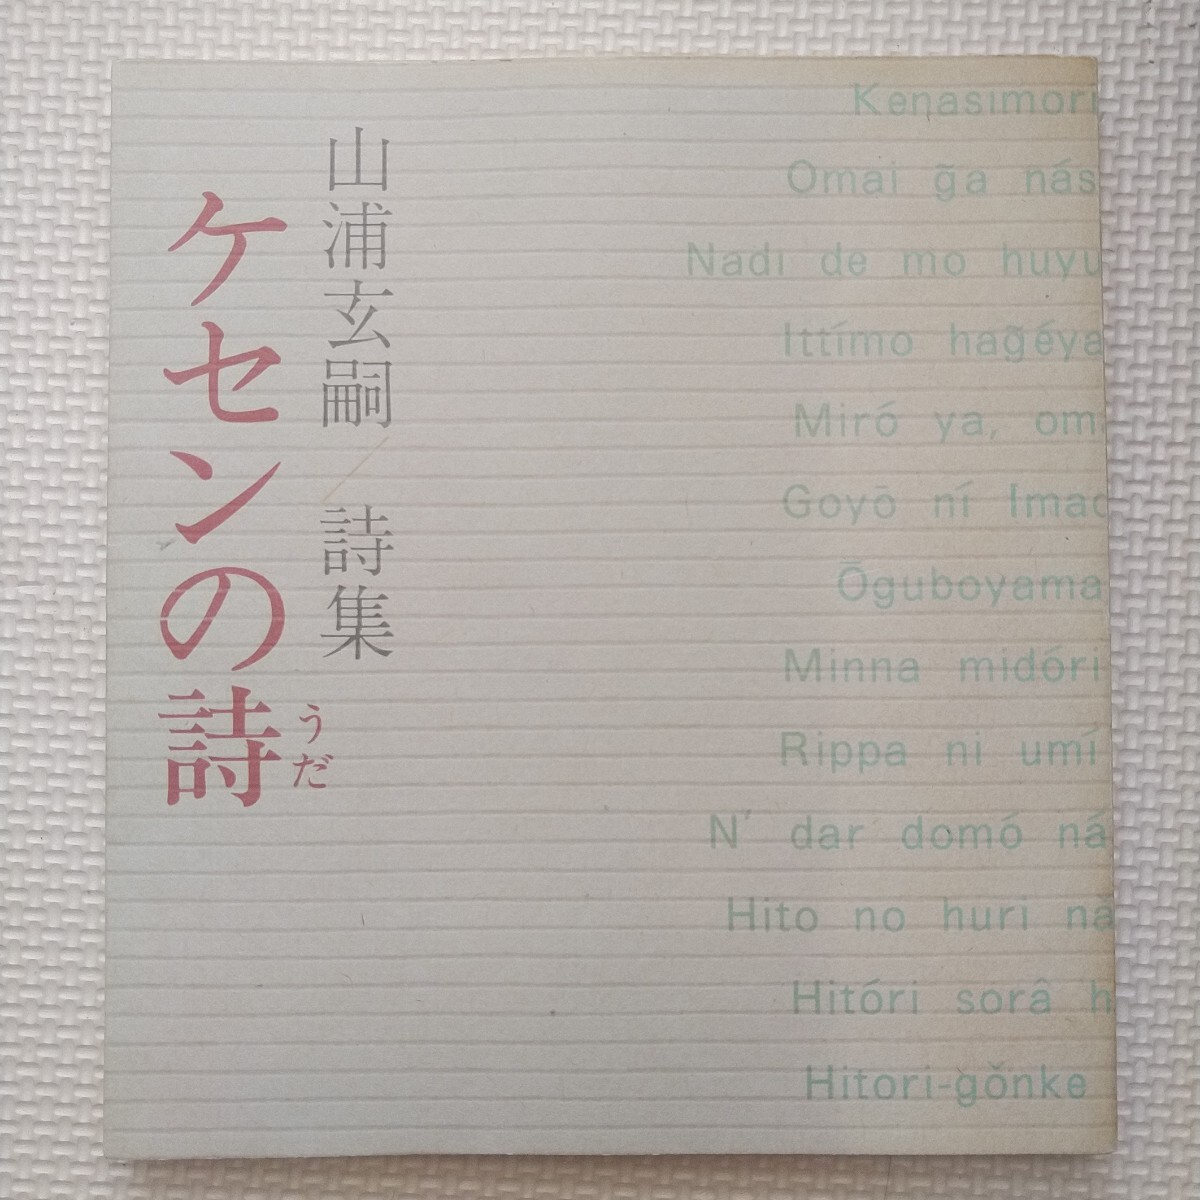 山浦玄嗣/詩集
ケセンの詩
うだ
Kenasimori
Omai g̃a nás
Nadi de mo huyu
Ittímo hag̃éya
Miró ya, om
Goyō ní Imad
Ōguboyama
Minna midóri
Rippa ni umí
N' dar domó ná
Hito no huri nă
Hitóri sorâ h
Hitori-gǒnke